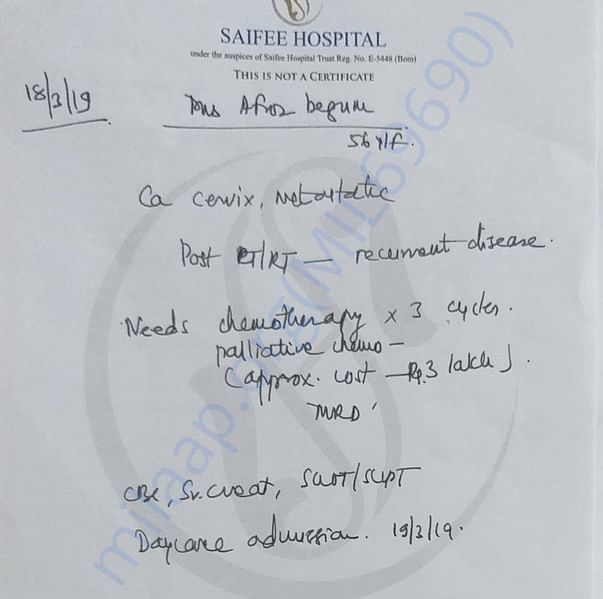 SAIFEE HOSPITAL
under the auspices of Saifee Hospital Trust Reg. No. E-5448 (Bom)
THIS IS NOT A CERTIFICATE
18/3/19
Mrs Afroz begum
56 y/f.
Ca cervix, metastatic
Post CT/RT — recurrent disease.
Needs chemotherapy x 3 cycles.
palliative chemo –
(approx. cost – Rs. 3 lakh).
CBC, Sr. creat, SGOT/SGPT
Daycare admission. 19/3/19.
milaap.org(MIL69690)